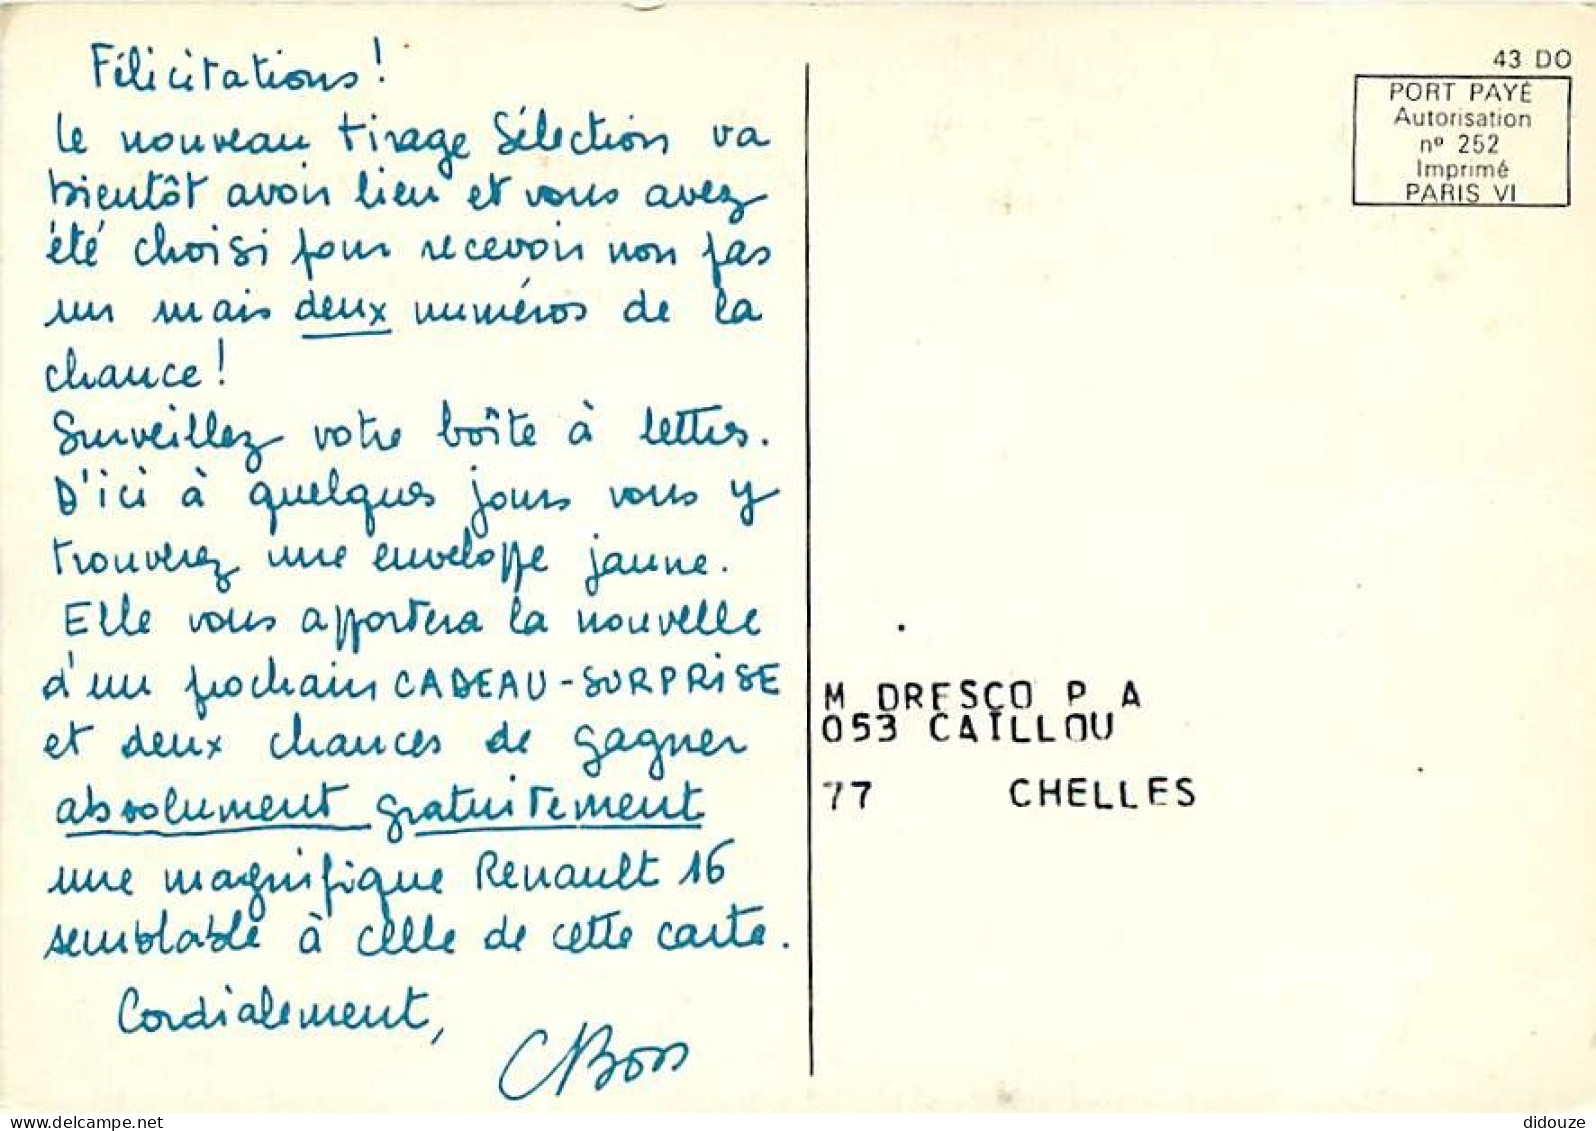 Félicitations!
Le nouveau tirage Sélection va
bientôt avoir lieu et vous avez
été choisi pour recevoir non pas
un mais deux numéros de la
chance!
Surveillez votre boîte à lettres.
D'ici à quelques jours vous y
trouverez une enveloppe jaune.
Elle vous apportera la nouvelle
d'un prochain CADEAU-SURPRISE
et deux chances de gagner
absolument gratuitement
une magnifique Renault 16
semblable à celle de cette carte.
Cordialement,
43 DO
PORT PAYÉ
Autorisation
nº 252
Imprimé
PARIS VI
M DRESCO P A
053 CAILLOU
77 CHELLES
delcampe.net
didouze